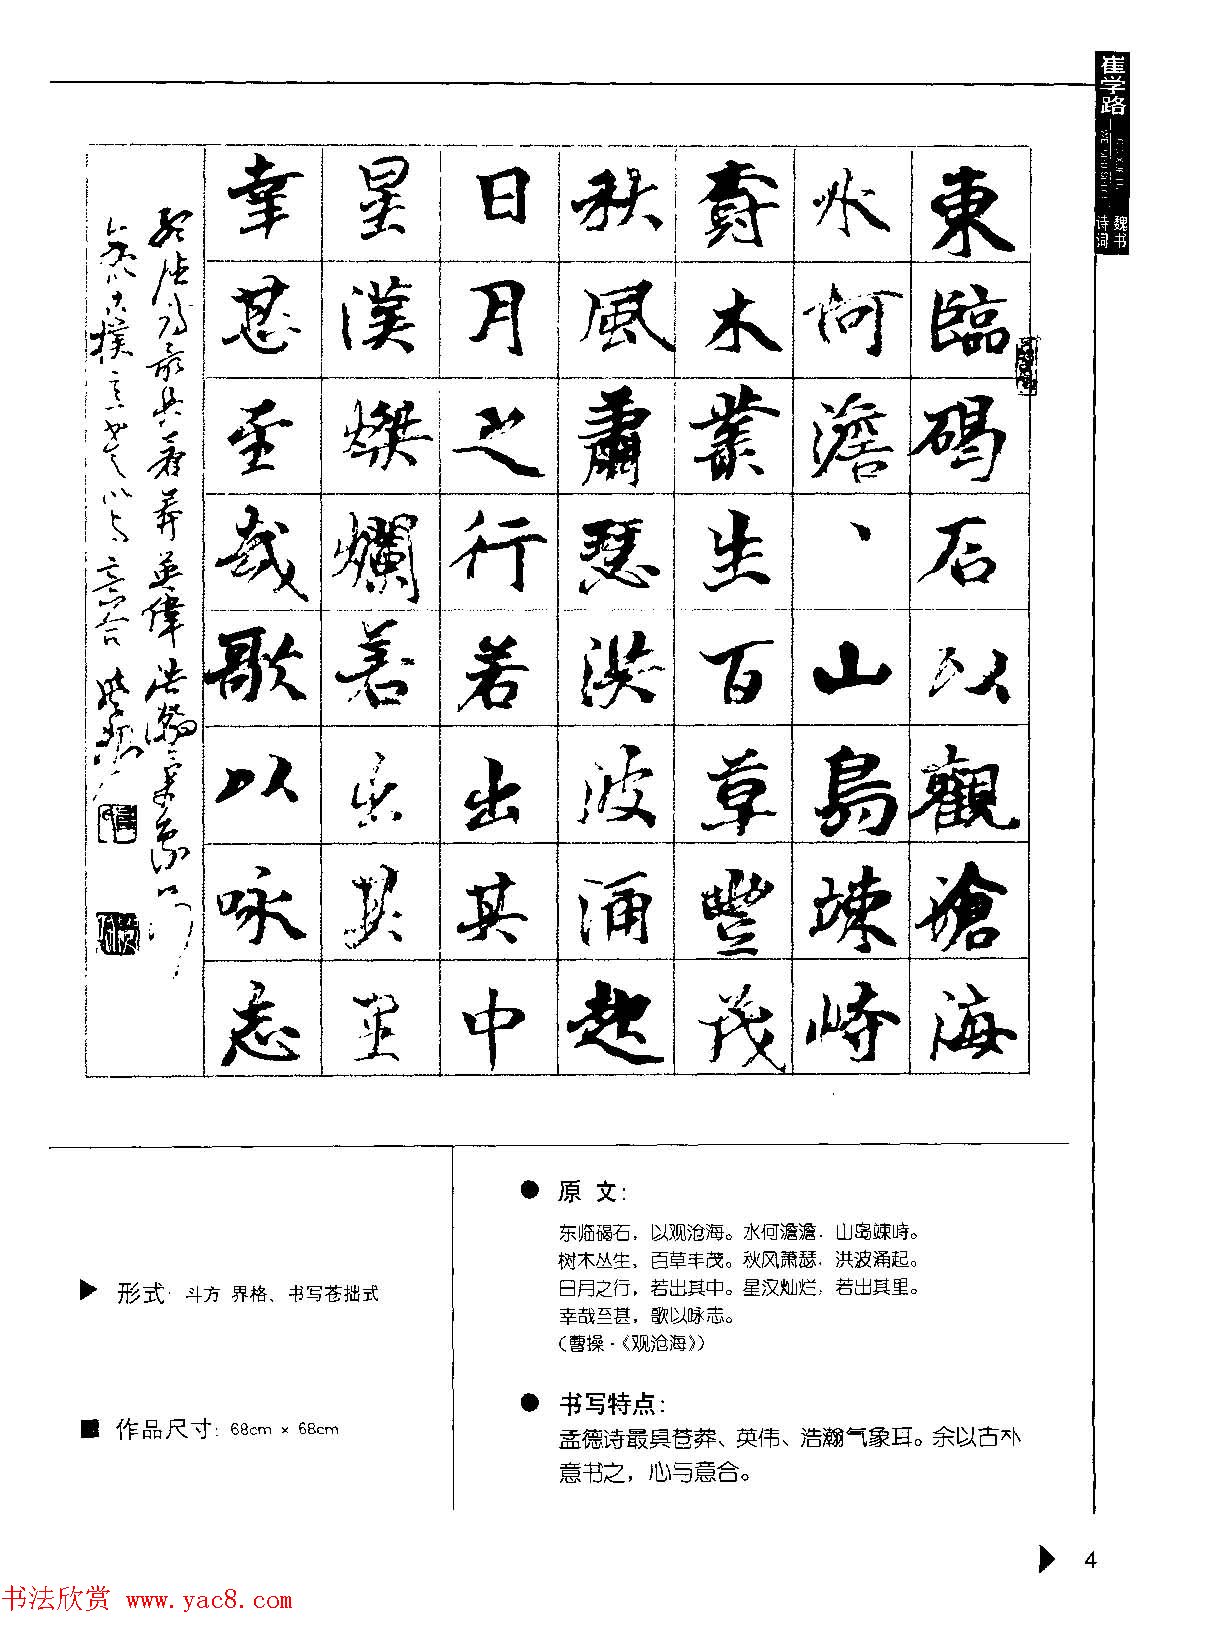 崔学路
魏书
诗词
東臨碣石以觀滄海
水何澹、山島竦峙
樹木叢生百草豐茂
秋風蕭瑟洪波涌起
日月之行若出其中
星漢燦爛若出其里
幸甚至哉歌以咏志
孟德詩最具蒼莽英偉浩瀚氣象耳
余以古樸意書之心与意合 學路
▶ 形式: 斗方 界格、书写苍拙式
■ 作品尺寸: 68cm × 68cm
● 原 文:
东临碣石，以观沧海。水何澹澹，山岛竦峙。
树木丛生，百草丰茂。秋风萧瑟，洪波涌起。
日月之行，若出其中。星汉灿烂，若出其里。
幸哉至甚，歌以咏志。
(曹操·《观沧海》)
● 书写特点:
孟德诗最具苍莽、英伟、浩瀚气象耳。余以古朴
意书之，心与意合。
4
书法欣赏 www.yac8.com